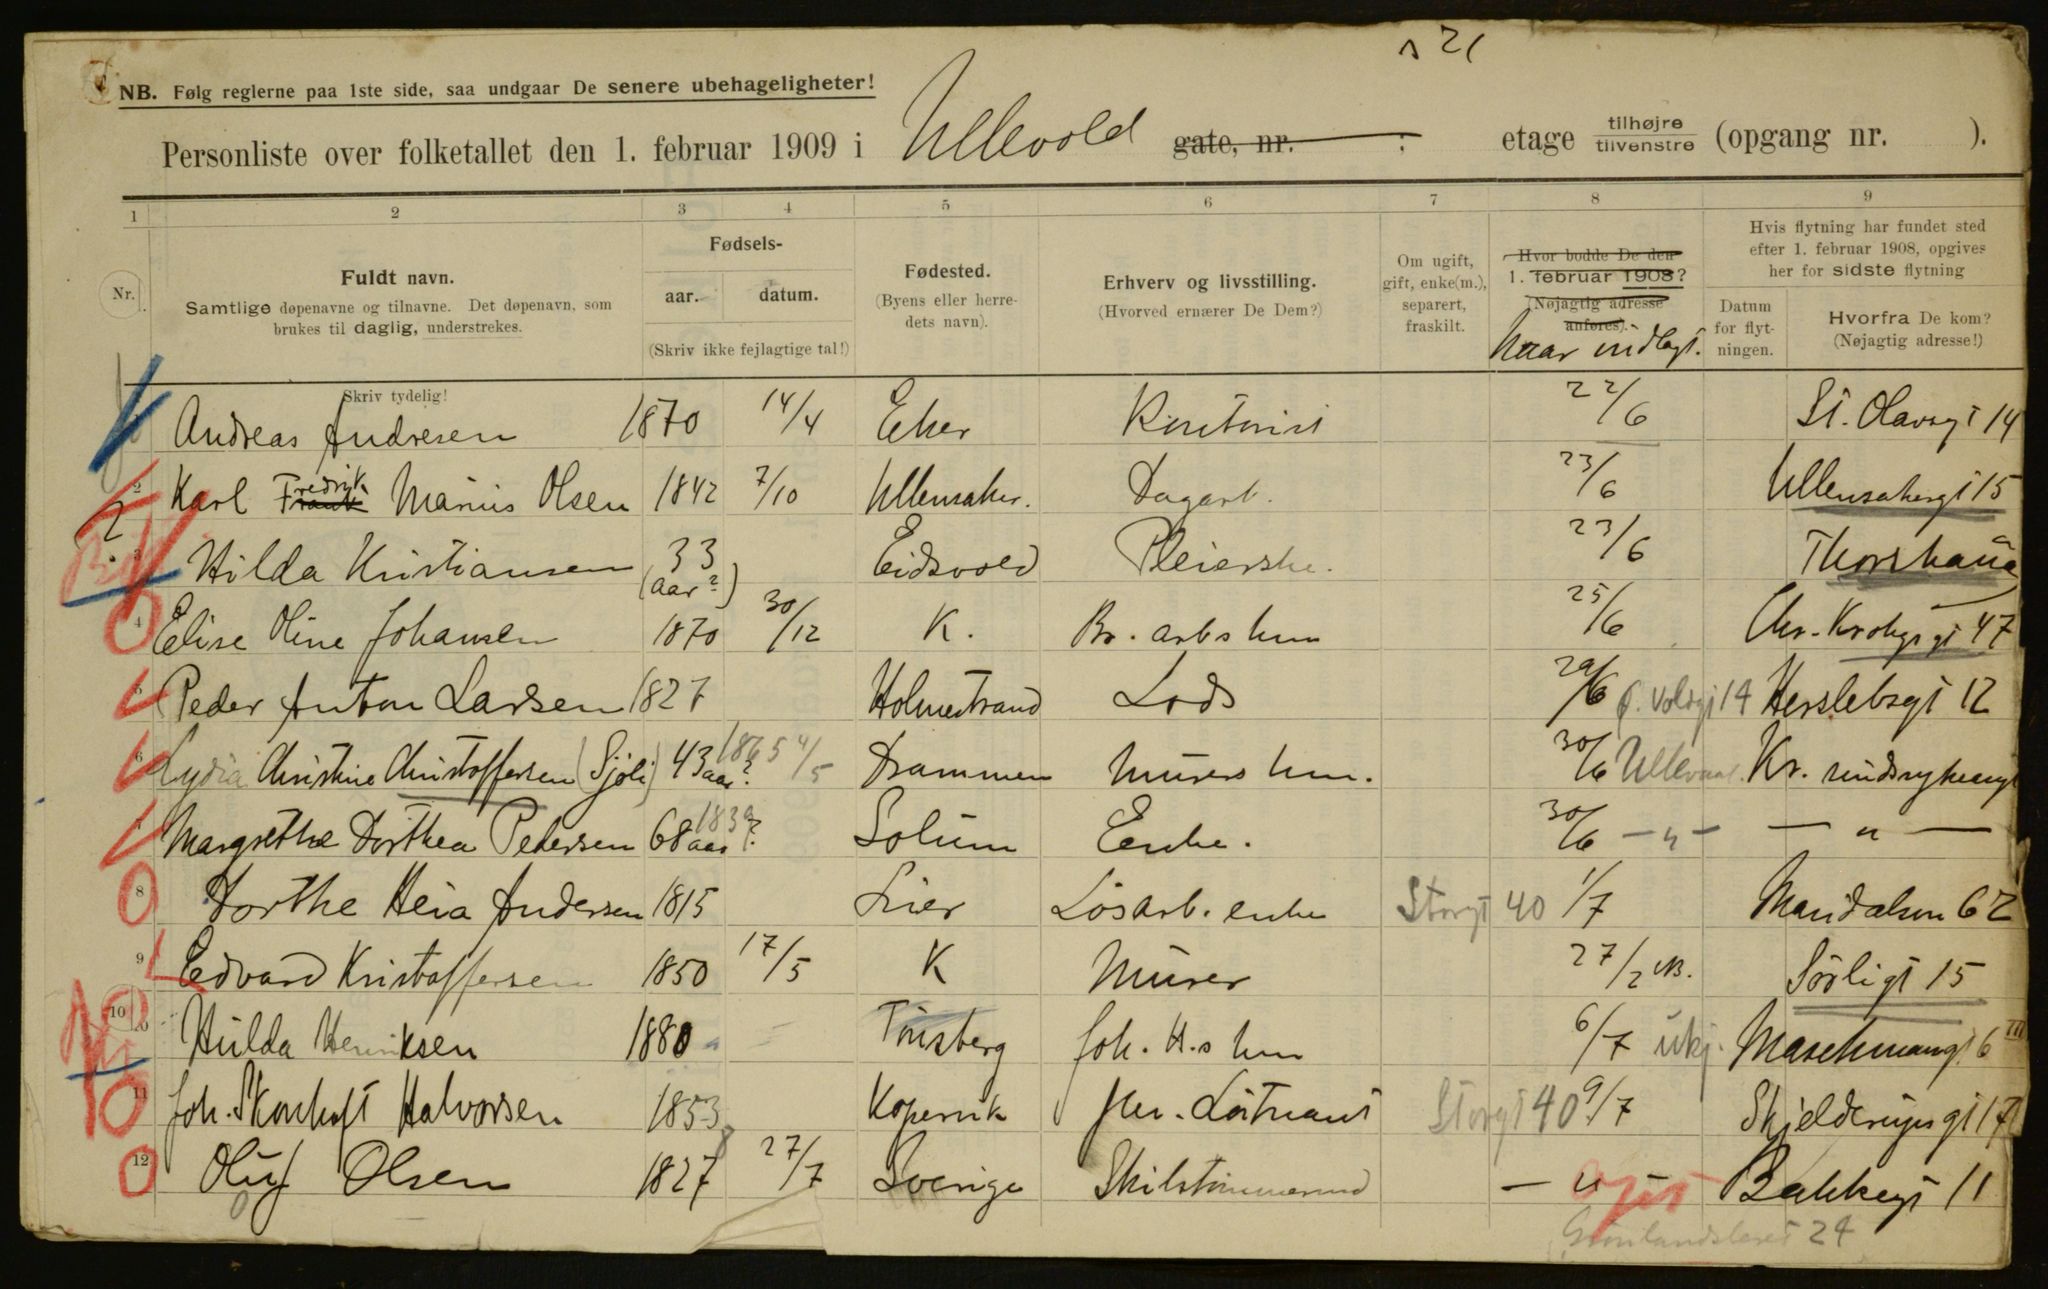 21
NB. Følg reglerne paa 1ste side, saa undgaar De senere ubehageligheter!
Personliste over folketallet den 1. februar 1909 i Ullevold gate, nr. : etage tilhøjre tilvenstre (opgang nr. ).
1 2 3 4 5 6 7 8 9
Nr. Fuldt navn. Samtlige døpenavne og tilnavne. Det døpenavn, som brukes til daglig, understrekes. Skriv tydelig!
Fødsels- aar. datum. (Skriv ikke fejlagtige tal!)
Fødested. (Byens eller herredets navn).
Erhverv og livsstilling. (Hvorved ernærer De Dem?)
Om ugift, gift, enke(m.), separert, fraskilt.
Hvor bodde De den 1. februar 1908? (Nøjagtig adresse anføres). Naar indlagt.
Hvis flytning har fundet sted efter 1. februar 1908, opgives her for sidste flytning
Datum for flytningen. Hvorfra De kom? (Nøjagtig adresse!)
Andreas Andresen 1870 14/4 Eker Kontorist 22/6 St. Olavsgt 14
2 Karl Fredrik Marius Olsen 1842 7/10 Ullensaker. Dagarb. 23/6 Ullensakergt 15
3 Hilda Kristiansen 33 (aar?) Eidsvold Pleierske. 23/6 Thorshaug
4 Elise Oline Johansen 1870 30/12 K. Br. arbs hm 25/6 Chr. Krohgs gt 47
5 Peder Anton Larsen 1827 Holmestrand Lods 29/6 Voldgt 14 Herslebsgt 12
6 Lydia Christine Christoffersen (Sjøli) 43 aar? 1865 4/5 Drammen Murers hm. 30/6 Ullevaal. Kr.
7 Margrethe Dorthea Pedersen 68 aar? 1839 Solum Enke. 30/6 — " — — " —
8 Dorthe Heia Andersen 1815 Lier Løsarb. enke Storgt 40 1/7 Maridalsvn 62
9 Edvard Kristoffersen 1850 17/5 K Murer 27/2 NB. Sörligt 15
10 Hulda Henriksen 1880 Tönsberg Joh. H.s hm 6/7 ukj. Maschmansgt 6 III
11 Joh. Skonhoft Halvorsen 1853 Kopervik Lötnant Storgt 40 9/7 Skjelderups gt 17
12 Oluf Olsen 1827 8 27/7 Sverige Skibstömmermand — " — Bakkegt 11
Grønlandsleret 24